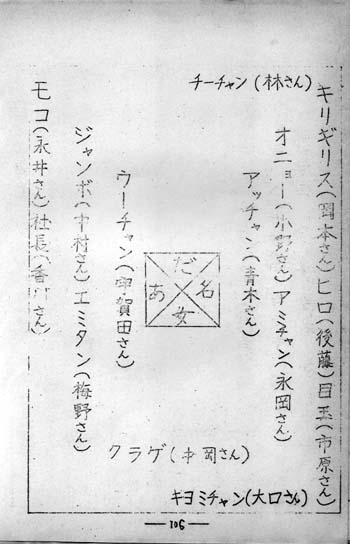 チーチャン(林さん)
キリギリス(岡本さん)ヒロ(後藤)目玉(市原さん)
オニョー(小野さん)アミチャン(永岡さん)
アッチャン(青木さん)
あだ名
女
ウーチャン(宇賀田さん)
ジャンボ(中村さん)エミタン(梅野さん)
モコ(永井さん)社長(香川さん)
クラゲ(中岡さん)
キヨミチャン(大口さん)
—106—